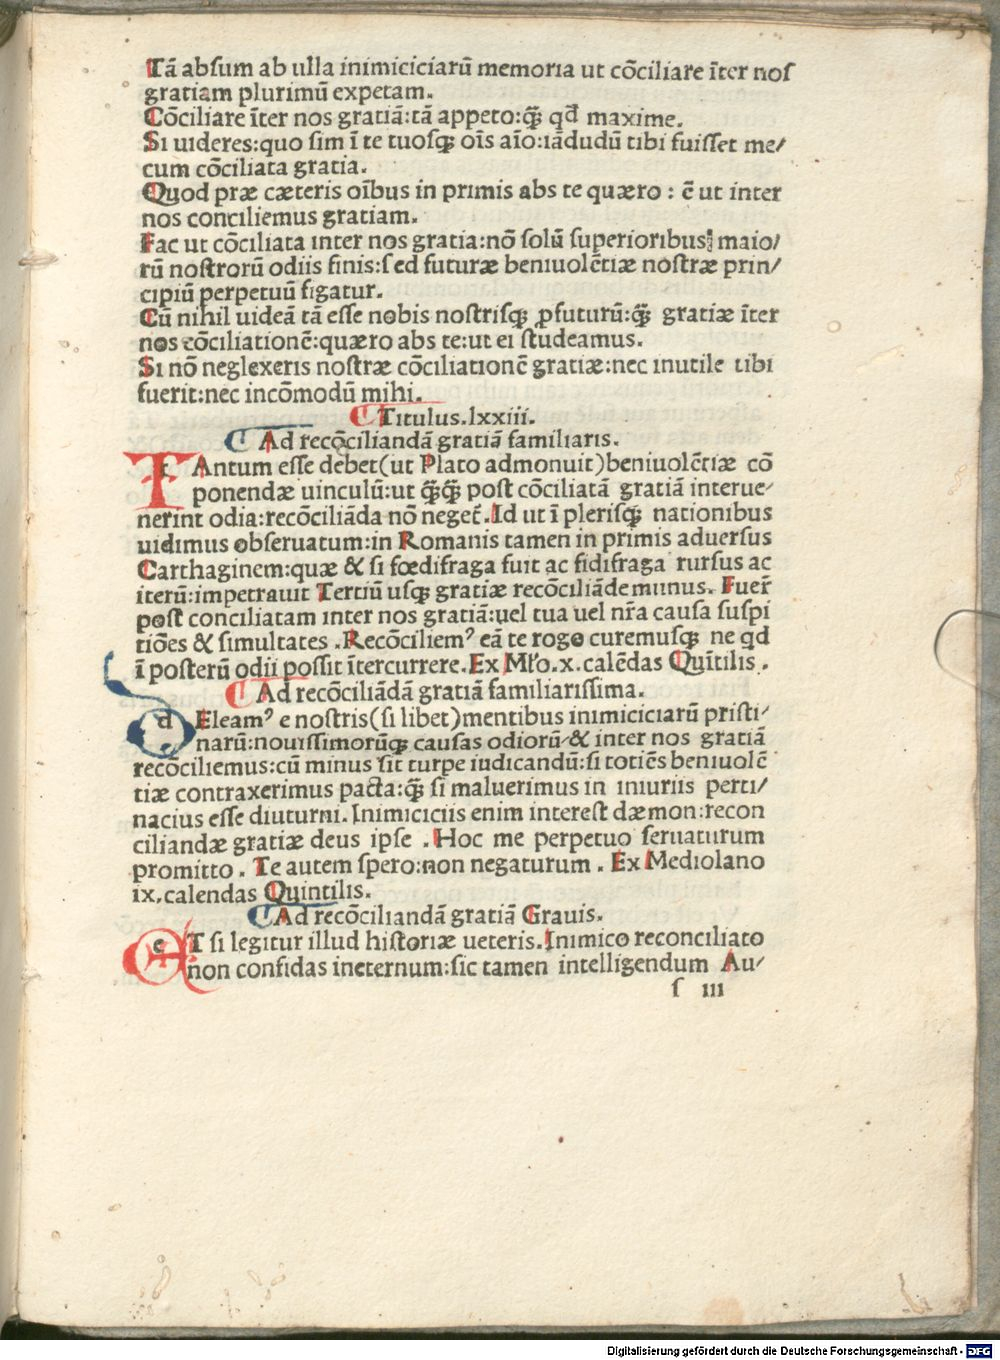 Tā absum ab ulla inimiciciarū memoria ut cōciliare īter nos
gratiam plurimū expetam.
Cōciliare īter nos gratiā:tā appeto:q̄ꝫ qd̄ maxime.
Si uideres:quo sim ī te tuosqꝫ oīs aīo:iādudū tibi fuisset me/
cum cōciliata gratia.
Quod præ cæteris oībus in primis abs te quæro : ē ut inter
nos conciliemus gratiam.
Fac ut cōciliata inter nos gratia:nō solū superioribus maio/
rū nostrorū odiis finis:sed futuræ beniuolētiæ nostræ prin/
cipiū perpetuū figatur.
Cū nihil uideā tā esse nobis nostrisqꝫ ꝓfuturū:q̄ꝫ gratiæ īter
nos cōciliationē:quæro abs te:ut ei studeamus.
Si nō neglexeris nostræ cōciliationē gratiæ:nec inutile tibi
fuerit:nec incōmodū mihi.
Titulus.lxxiii.
Ad recōciliandā gratiā familiaris.
t ANtum esse debet(ut Plato admonuit)beniuolētiæ cō
ponendæ uinculū:ut q̄ꝫq̄ꝫ post cōciliatā gratiā interue/
nerint odia:recōciliāda nō neget̄.Id ut ī plerisqꝫ nationibus
uidimus obseruatum:in Romanis tamen in primis aduersus
Carthaginem:quæ & si fœdifraga fuit ac fidifraga rursus ac
iterū:impetrauit Tertiū usqꝫ gratiæ recōciliāde munus. Fuer̄
post conciliatam inter nos gratiā:uel tua uel nr̄a causa suspi
tiōes & simultates .Recōciliemꝰ eā te rogo curemusqꝫ ne qd
ī posterū odii possit ītercurrere.Ex Mło.x.calēdas Quītilis.
Ad recōciliādā gratiā familiarissima.
d Eleamꝰ e nostris(si libet)mentibus inimiciciarū pristi/
narū:nouissimorūqꝫ causas odiorū/& inter nos gratiā
recōciliemus:cū minus sit turpe iudicandū:si totiēs beniuolē
tiæ contraxerimus pacta:q̄ꝫ si maluerimus in iniuriis perti/
nacius esse diuturni.Inimiciciis enim interest dæmon:recon
ciliandæ gratiæ deus ipse .Hoc me perpetuo seruaturum
promitto . Te autem spero:non negaturum . Ex Mediolano
ix.calendas Quintilis.
Ad recōciliandā gratiā Grauis.
e T si legitur illud historiæ ueteris.Inimico reconciliato
non confidas ineternum:sic tamen intelligendum Au/
s iii
Digitalisierung gefördert durch die Deutsche Forschungsgemeinschaft - DFG